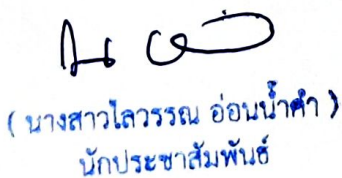 (นางสาวไลวรรณ อ่อนน้ำคำ)
นักประชาสัมพันธ์